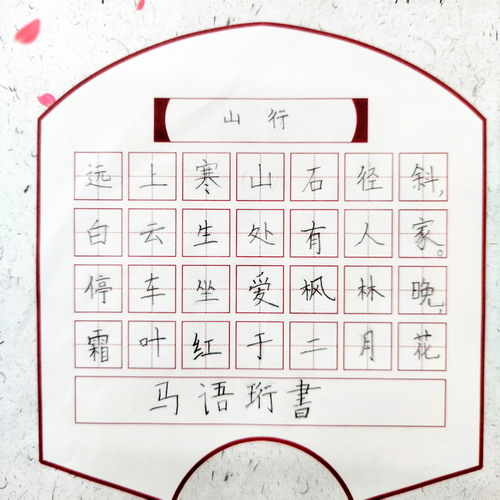 山行
远上寒山石径斜，
白云生处有人家。
停车坐爱枫林晚，
霜叶红于二月花
马语珩書